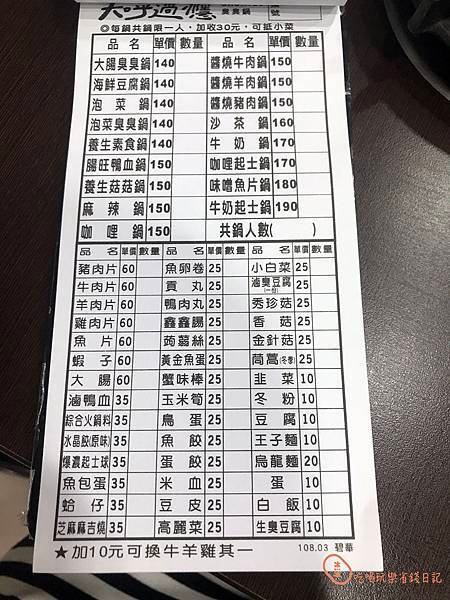 天呼過癮
臭臭鍋
號
◎每鍋共鍋限一人，加收30元，可抵小菜
品名 單價 數量 品名 單價 數量
大腸臭臭鍋 140 醬燒牛肉鍋 150
海鮮豆腐鍋 140 醬燒羊肉鍋 150
泡菜鍋 140 醬燒豬肉鍋 150
泡菜臭臭鍋 140 沙茶鍋 160
養生素食鍋 140 牛奶鍋 170
腸旺鴨血鍋 150 咖哩起士鍋 170
養生菇菇鍋 150 味噌魚片鍋 180
麻辣鍋 150 牛奶起士鍋 190
咖哩鍋 150 共鍋人數( )
品名 單價 數量 品名 單價 數量 品名 單價 數量
豬肉片 60 魚卵卷 25 小白菜 25
牛肉片 60 貢丸 25 滷臭豆腐(一份) 25
羊肉片 60 鴨肉丸 25 秀珍菇 25
雞肉片 60 鑫鑫腸 25 香菇 25
魚片 60 蒟蒻絲 25 金針菇 25
蝦子 60 黃金魚蛋 25 茼萵(冬季) 25
大腸 60 蟹味棒 25 韭菜 10
滷鴨血 35 玉米筍 25 冬粉 10
綜合火鍋料 35 鳥蛋 25 豆腐 10
水晶餃(原味) 35 魚餃 25 王子麵 10
爆濃起士球 35 蛋餃 25 烏龍麵 20
魚包蛋 35 米血 25 蛋 10
蛤仔 35 豆皮 25 白飯 10
芝麻麻吉燒 35 高麗菜 25 生臭豆腐 10
★加10元可換牛羊雞其一
108.03 碧華
吃喝玩樂省錢日記